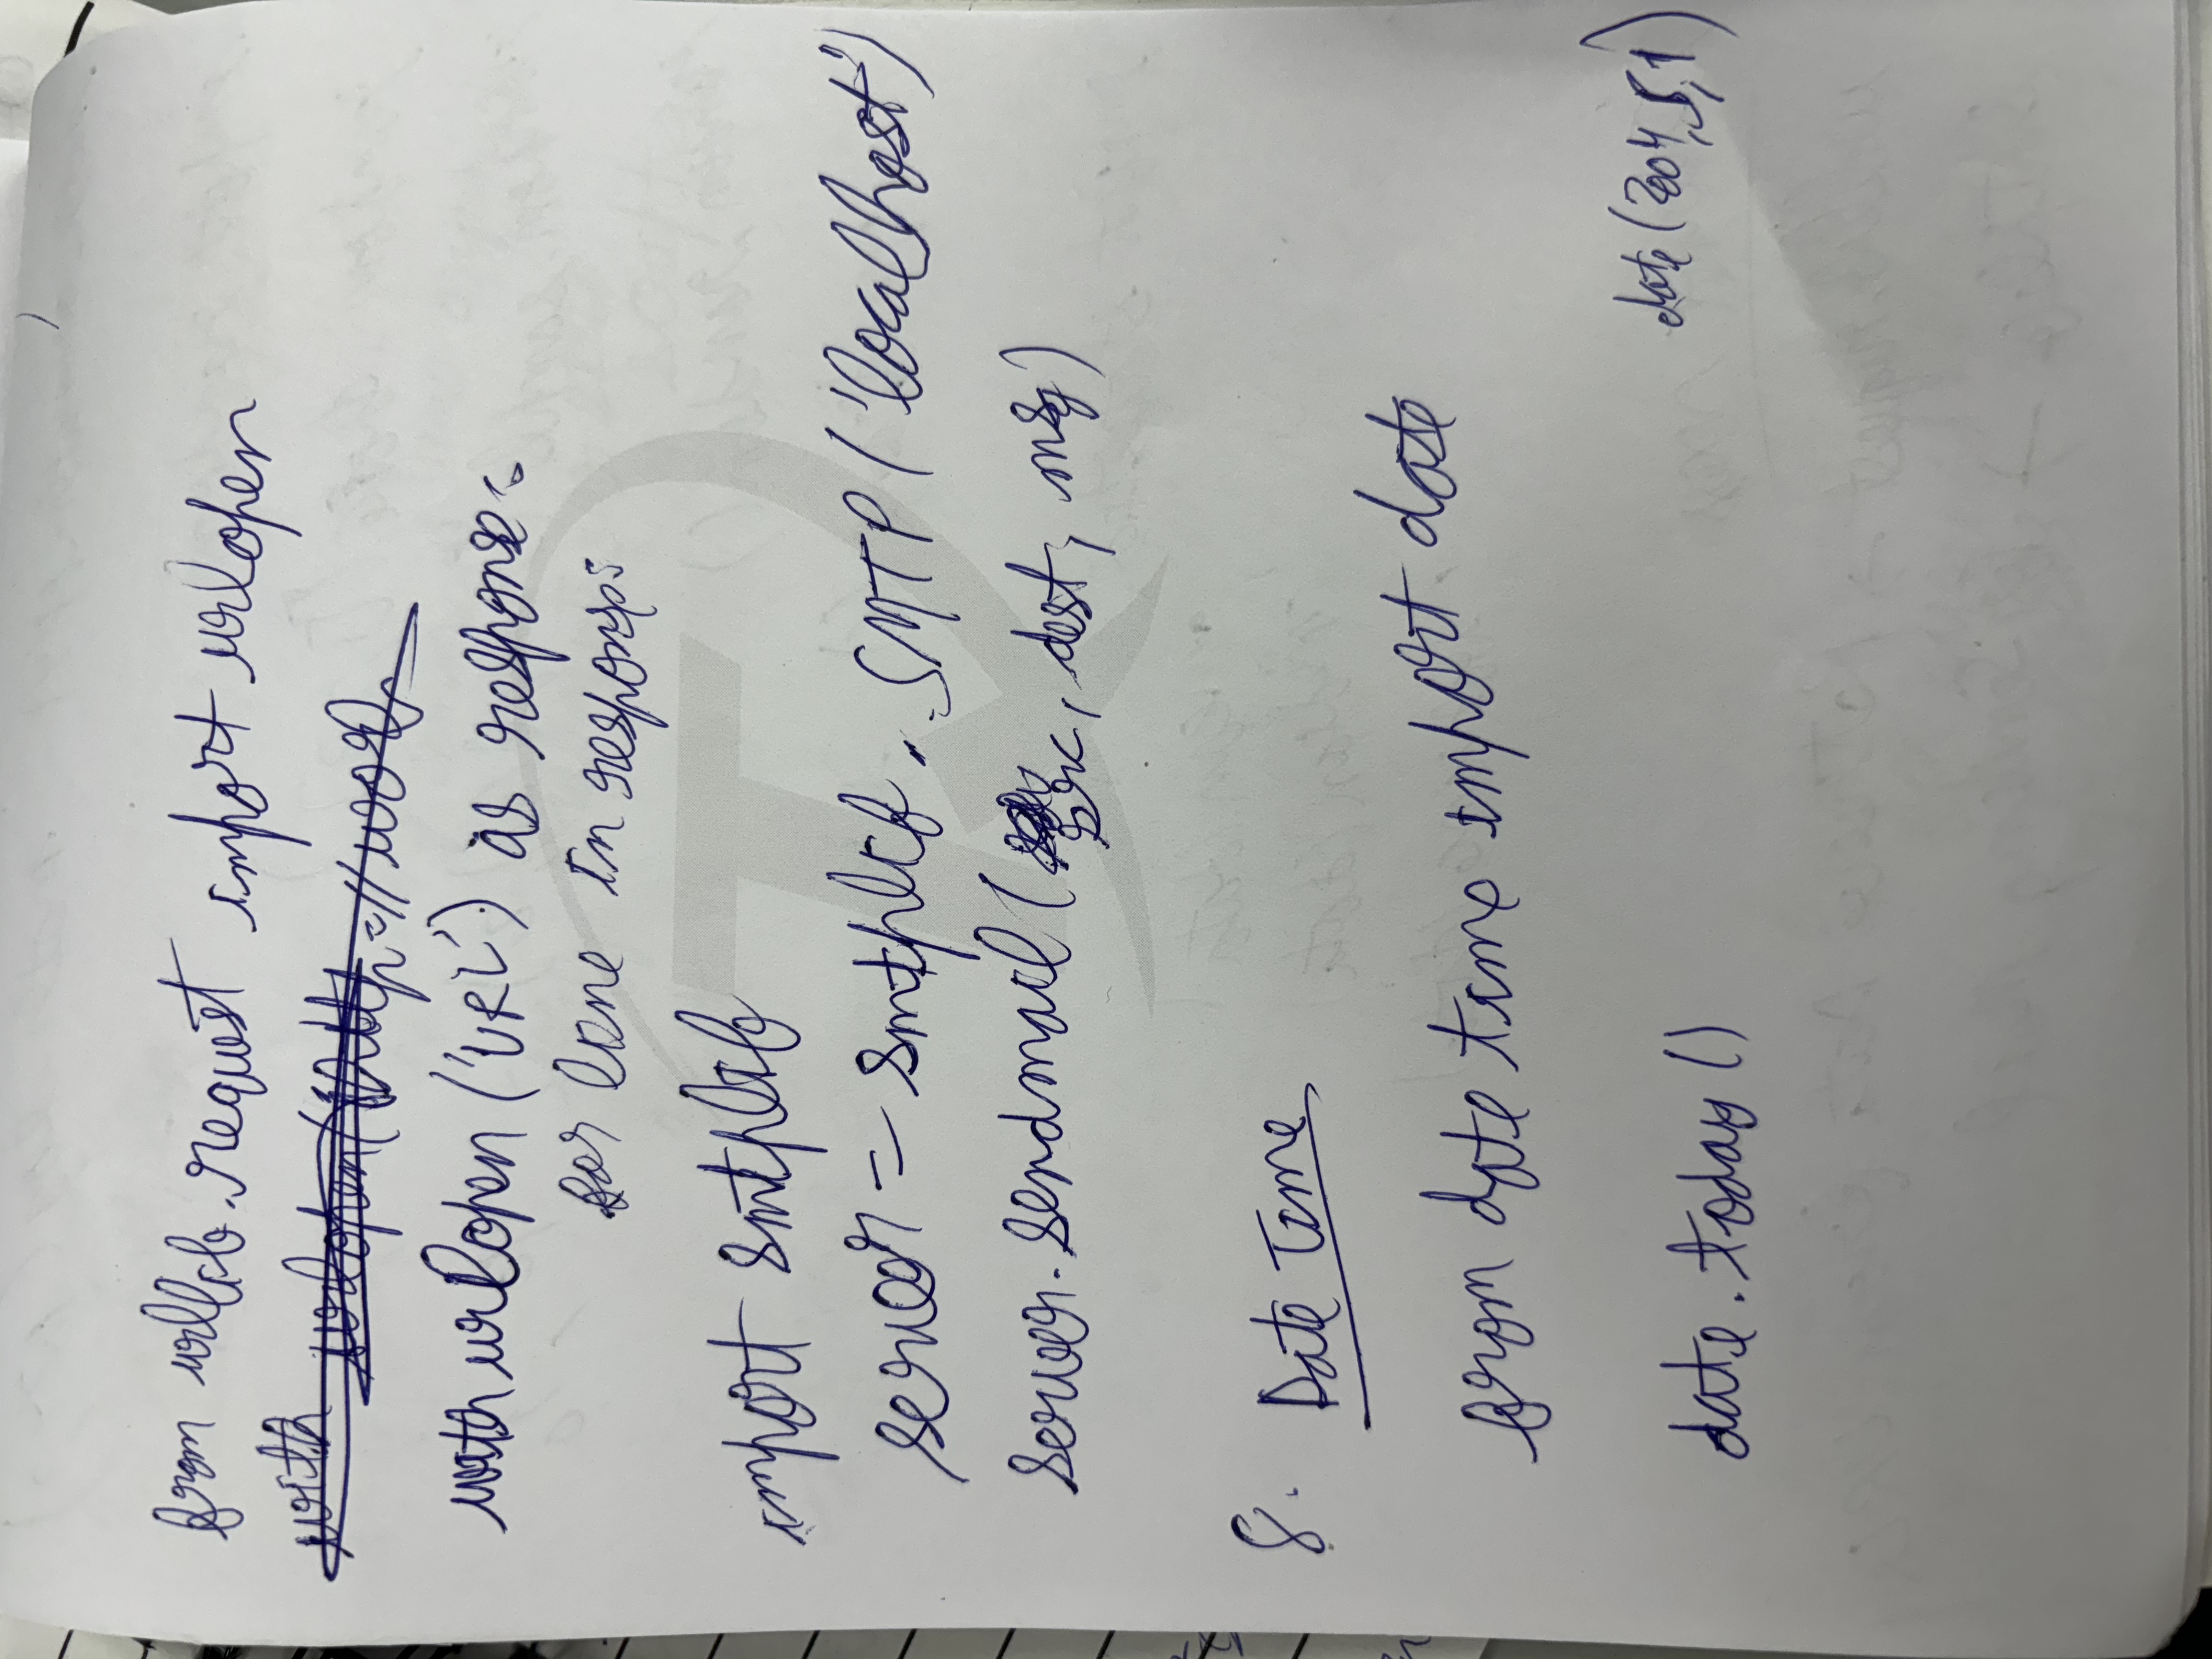 from urllib.request import urlopen
with urlopen('http://wor
with urlopen ('URL') as response:
for line in response:
import smtplib
server = smtplib. SMTP ('localhost')
server.sendmail (src, dest, msg)
8. Date Time
from date time import date
date (2004, 5, 1)
date.today ()